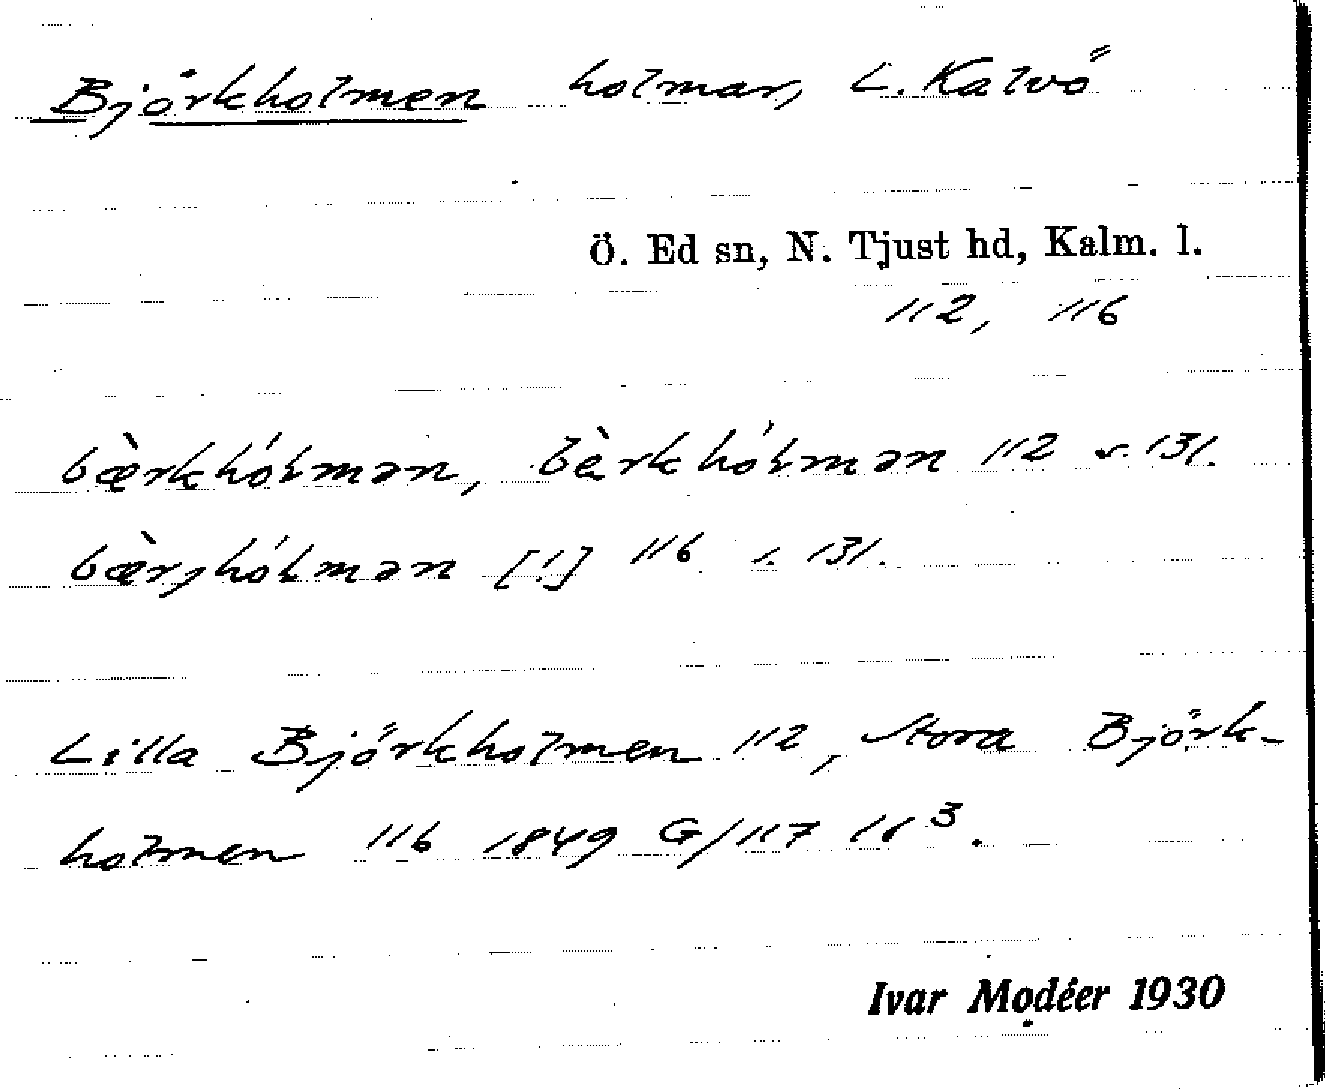 Björkholmen holmar, L. Kalvö
Ö. Ed sn, N. Tjust hd, Kalm. l.
112, 116
bæ̀rkhóLmən, bèrkhóLmən 112 s. 131.
bæ̀rjhóLmən [!] 116 s. 131.
Lilla Björkholmen 112, Stora Björk-
holmen 116 1849 G/117 11³.
Ivar Modéer 1930